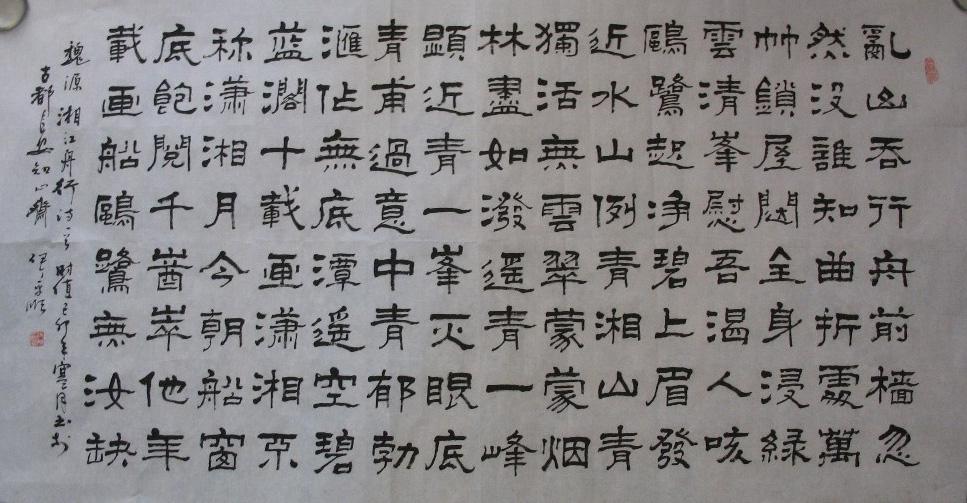 亂山吞行舟前檣忽
然沒誰知曲折處萬
竹鎖屋闥全身浸緑
雲清峯慰吾渴人咳
鷗鷺起净碧上眉發
近水山例青湘山青
獨活無雲翠蒙蒙烟
林盡如潑遥青一峰
顕近青一峯灭眼底
青甫過意中青郁勃
滙作無底潭遥空碧
蓝濶十載画潇湘不
称潇湘月今朝船窗
底飽閲千崷崒他年
載画船鷗鷺無汝缺
魏源湘江舟行诗一首時值己卯年寒月书於
古都長安知心齋